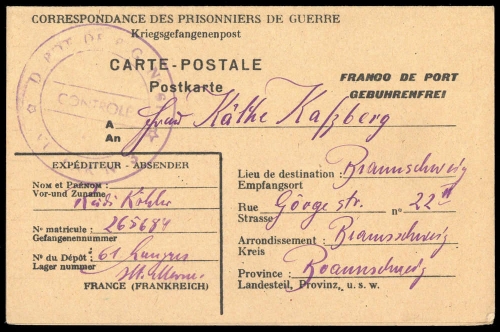 CORRESPONDANCE DES PRISONNIERS DE GUERRE
Kriegsgefangenenpost
CARTE-POSTALE
Postkarte
FRANCO DE PORT
GEBUHRENFREI
CONTROLE
A Frau Käthe Katzberg
An
EXPÉDITEUR - ABSENDER
NOM et PRÉNOM :
Vor-und Zuname
Rudi Köhler
N° matricule : 265684
Gefangenennummer
N° du Dépôt : 61 Langres
Lager nummer
Hte Marne
FRANCE (FRANKREICH)
Lieu de destination : Braunschweig
Empfangsort
Rue Görgestr. n° 22
Strasse
Arrondissement : Braunschweig
Kreis
Province : Braunschweig
Landesteil, Provinz, u. s. w.